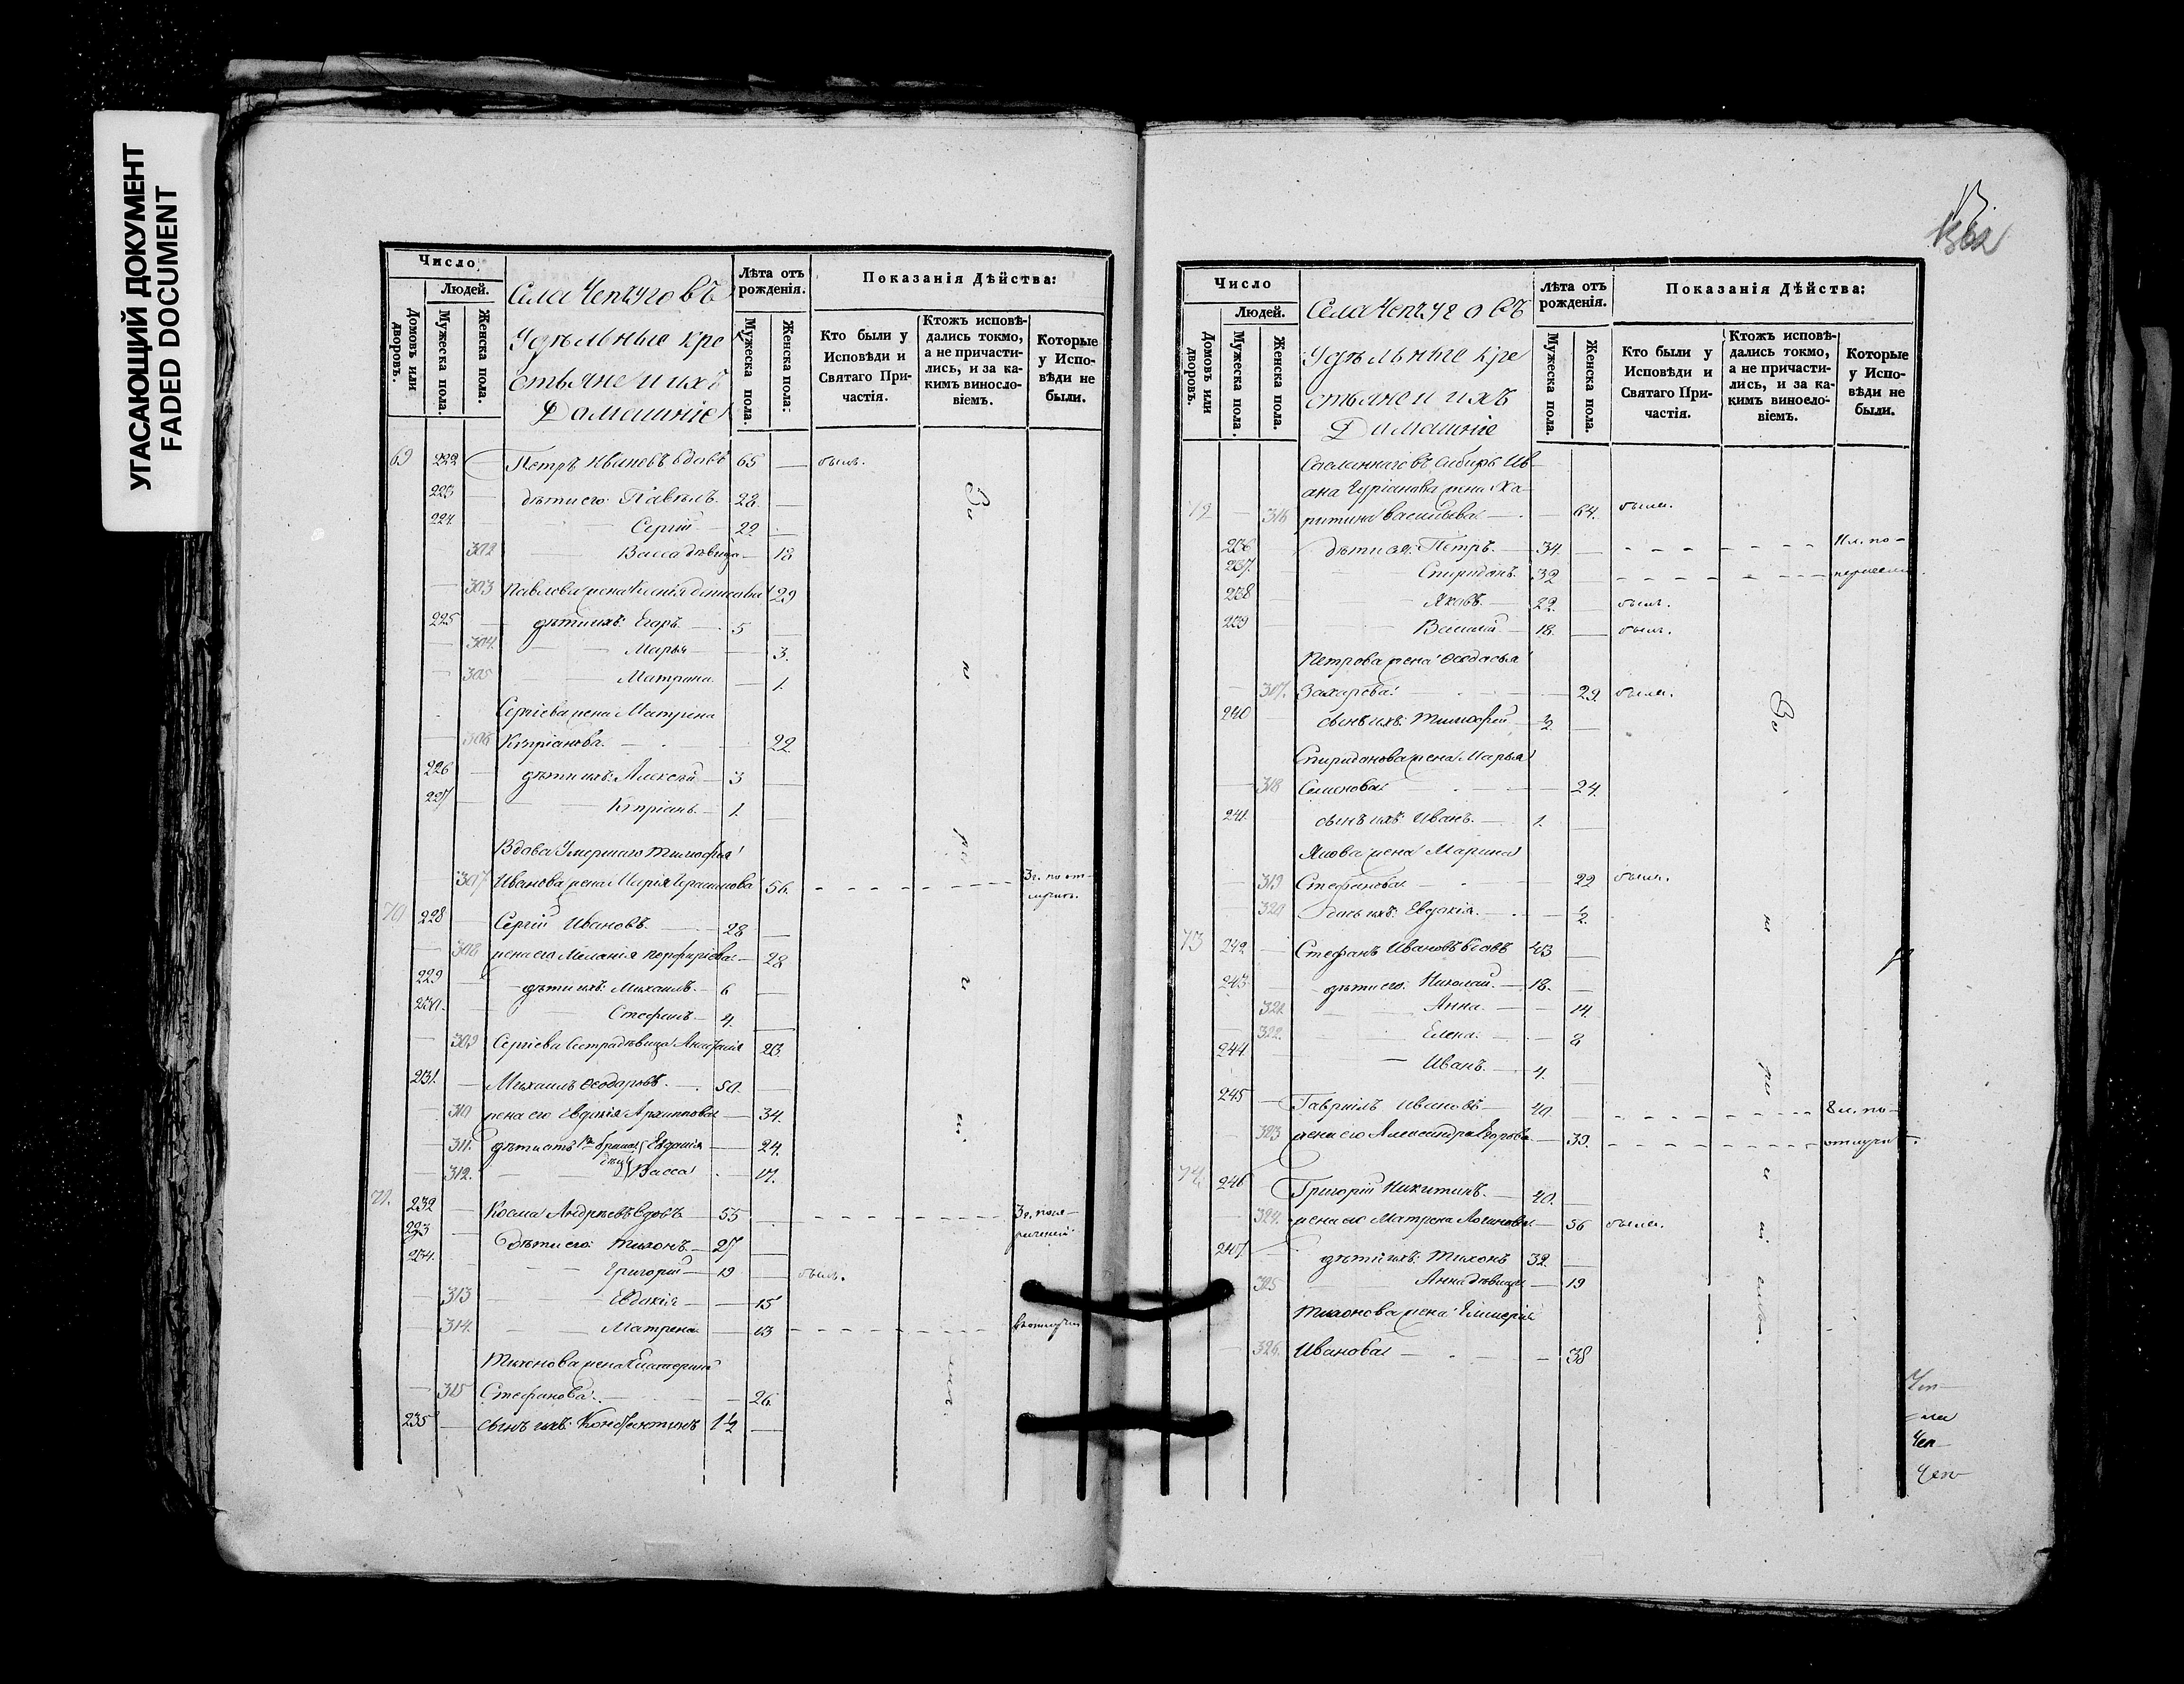 УГАСАЮЩИЙ ДОКУМЕНТ
FADED DOCUMENT
Число
Людей.
Домовъ или дворовъ.
Мужеска пола.
Женска пола.
Села Чепчуговъ
Удѣльные кре
стьяне и ихъ
Домашніе
Лѣта отъ рожденія.
Мужеска пола.
Женска пола.
Показанія Дѣйства:
Кто были у Исповѣди и Святаго Причастія.
Ктожъ исповѣдались токмо, а не причастились, и за какимъ винословіемъ.
Которые у Исповѣди не были.
69 222 — Петръ Ивановъ вдовъ 65 — былъ.
223 дѣти его: Павелъ 28 —
224 Сергій 22 —
302 Васса дѣвица — 18
303 Павлова жена Ксенія 29
225 дѣти ихъ: Егоръ 5 —
304 Марья — 3.
305 Матрона — 1.
Сергіева жена Матрона
306 Кипріанова — 22
226 дѣти ихъ: Алексѣй 3 —
227 Кипріанъ 1. —
Вдова Умершаго Тимофея
307 Иванова жена Марія Герасимова 56.
70 228 Сергій Ивановъ. 28 —
308 жена его Меланія Порфиріева 28
229 дѣти ихъ: Михаилъ 6 —
230 Стефанъ 4. —
309 Сергіева Сестра дѣвица Анастасія 23
231. Михаилъ Ѳеодоровъ 50 —
310 жена его Евдокія Архиппова — 34.
311. дѣти отъ 1го брака Евдокія — 24.
312. Васса 17.
71. 232 Косма Андреевъ вдовъ 55
233 дѣти его: Тихонъ 27 —
234. Григорій 19 — былъ.
313 Евдокія — 15
314. Матрена — 13
Тихонова жена Екатерина
315 Стефанова — 26
235 сынъ ихъ: Константинъ 1½ —
Число
Людей.
Домовъ или дворовъ.
Мужеска пола.
Женска пола.
Села Чепчуговъ
Удѣльные кре
стьяне и ихъ
Домашніе
Лѣта отъ рожденія.
Мужеска пола.
Женска пола.
Показанія Дѣйства:
Кто были у Исповѣди и Святаго Причастія.
Ктожъ исповѣдались токмо, а не причастились, и за какимъ винословіемъ.
Которые у Исповѣди не были.
Сосланнаго въ Сибирь Ив
ана Гуріанова жена Ха
72 316 ритина Васильева — 64. была.
236 дѣти ея: Петръ 34. —
237. Спиридонъ 32 —
238 Яковъ 22. — былъ.
239 Василій 18. — былъ.
Петрова жена Ѳеодосья
317. Захарова — 29 была.
240 сынъ ихъ: Тимофей ½ —
Спиридонова жена Марья
318 Семенова — 24.
241 сынъ ихъ: Иванъ 1. —
жена Марина
319 Стефанова — 22 была.
320 дочь ихъ: Евдокія — ½
73 242 Стефанъ Ивановъ вдовъ 43 —
243 дѣти его: Николай 18. —
321. Анна — 14.
322. Елена — 8
244 Иванъ 4. —
245 Гавріилъ Ивановъ 40. —
323 жена его Александра Егорова — 39.
74. 246 Григорій Никитинъ 40. —
324. жена его Матрена 56 была.
247. дѣти ихъ: Тихонъ 32. —
325 Анна дѣвица — 19
Тихонова жена Гликерія
326. Иванова — 38